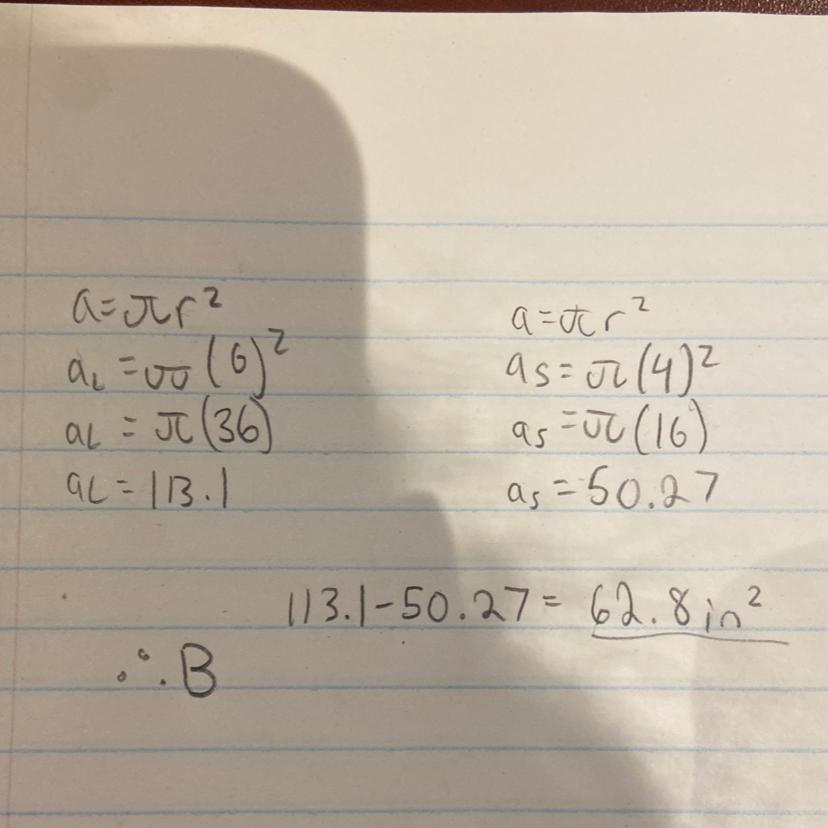 a=πr²
a_L=π(6)²
a_L=π(36)
a_L=113.1
a=πr²
a_s=π(4)²
a_s=π(16)
a_s=50.27
113.1-50.27=62.8in²
∴B